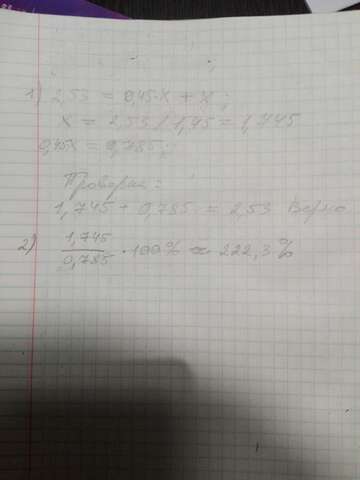 1) 2,53 = 0,45·X + X ;
X = 2,53 / 1,45 = 1,745
0,45X = 0,785 ;
Проверка:
1,745 + 0,785 = 2,53 Верно
2) 1,745
0,785 · 100% ≈ 222,3%